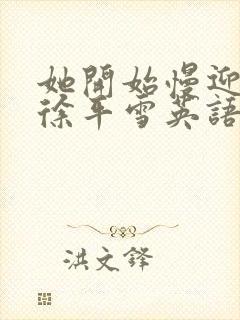 她開始慢迎
徐平雪英語
洪文鋒